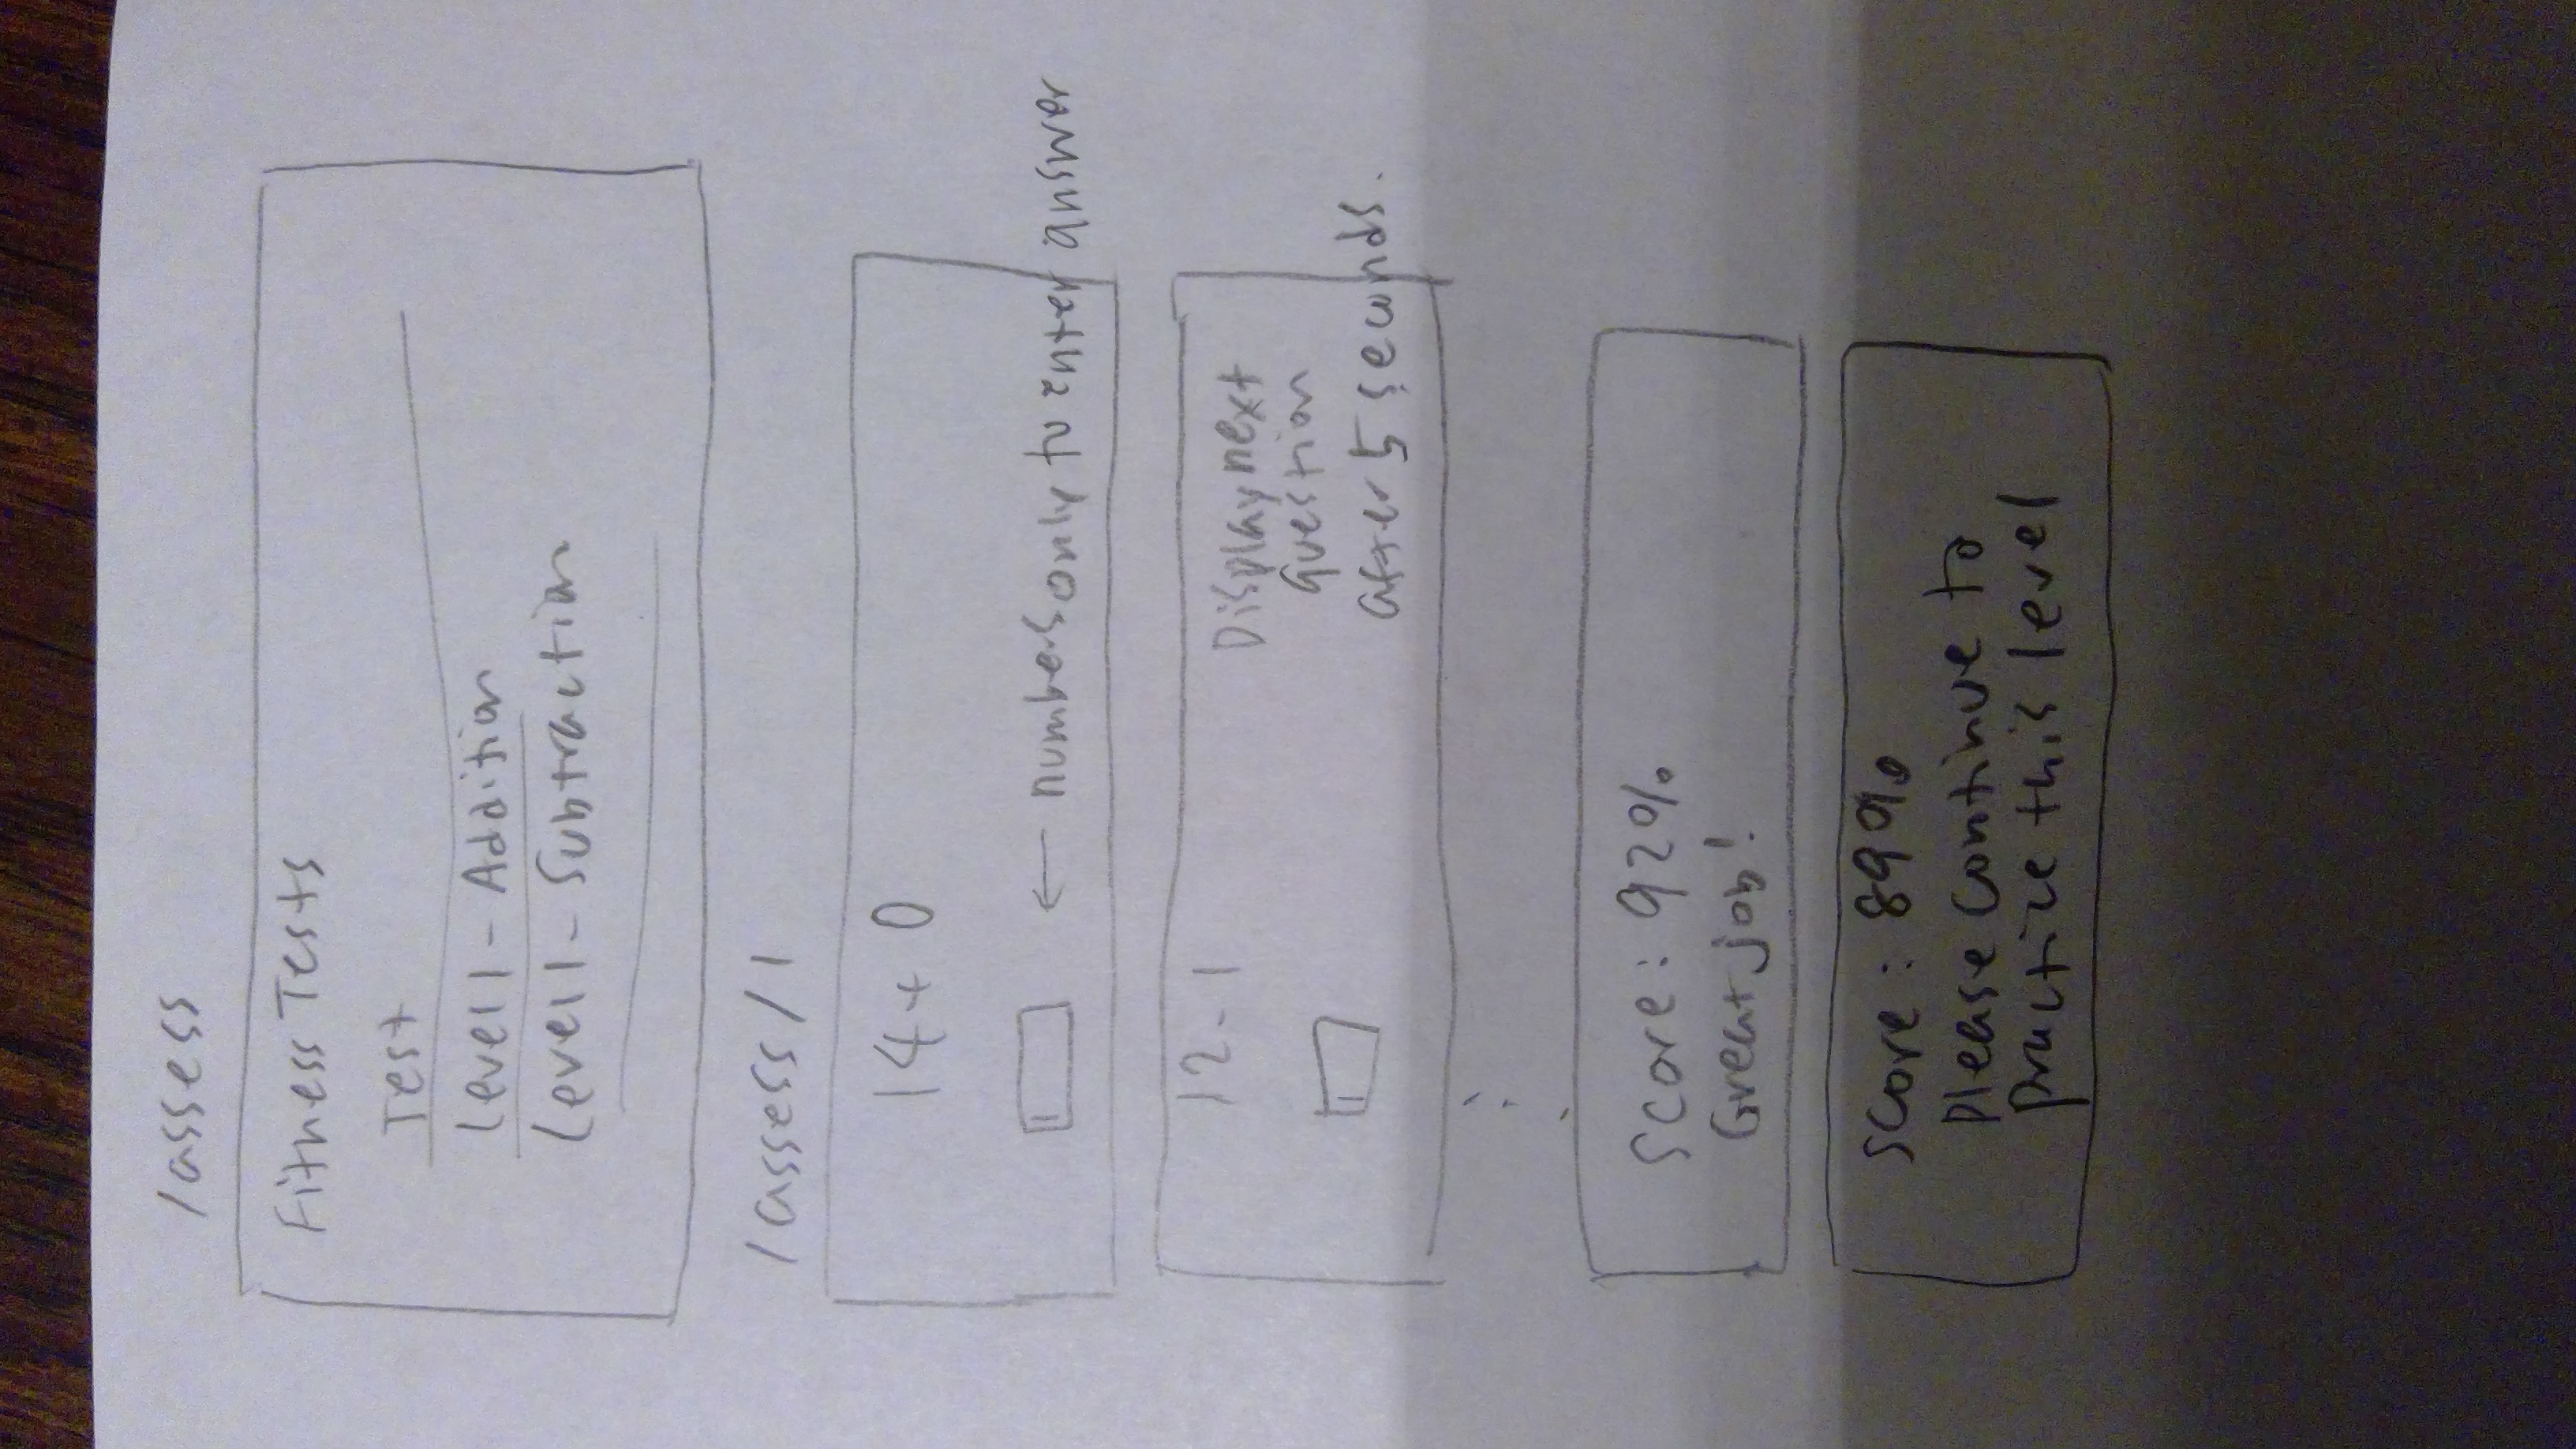 /assess
Fitness Tests
Test
Level 1 - Addition
Level 1 - Subtraction
/assess/1
14 + 0
← numbers only to enter answer
12 - 1
Display next
question
after 5 seconds.
Score: 92%
Great job!
Score: 89%
Please continue to
practice this level